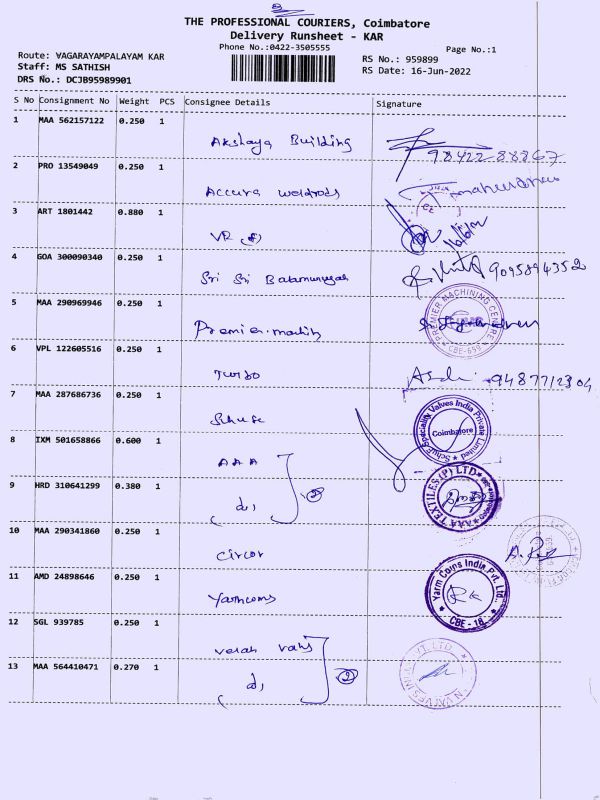 THE PROFESSIONAL COURIERS, Coimbatore
Delivery Runsheet - KAR
Phone No.:0422-3505555
Page No.:1
Route: VAGARAYAMPALAYAM KAR
RS No.: 959899
Staff: MS SATHISH
RS Date: 16-Jun-2022
DRS No.: DCJB95989901
S No Consignment No Weight PCS Consignee Details Signature
1 MAA 562157122 0.250 1
Akshaya Building
9842288867
2 PRO 13549049 0.250 1
Accura weldrods
3 ART 1801442 0.880 1
VR
4 GOA 300090340 0.250 1
Sri Sri
9095894352
5 MAA 290969946 0.250 1
Premier
PREMIER MACHINING CENTRE
CBE-659
6 VPL 122605516 0.250 1
Turbo
9487712304
7 MAA 287686736 0.250 1
Schufe
Speciality Valves India Private Limited
Coimbatore
8 IXM 501658866 0.600 1
AAA
9 HRD 310641299 0.380 1
do, 2
AAA TEXTILES (P) LTD
10 MAA 290341860 0.250 1
Circor
11 AMD 24898646 0.250 1
Yarm Coins India Pvt. Ltd.
CBE - 18
12 SGL 939785 0.250 1
13 MAA 564410471 0.270 1
do, 2